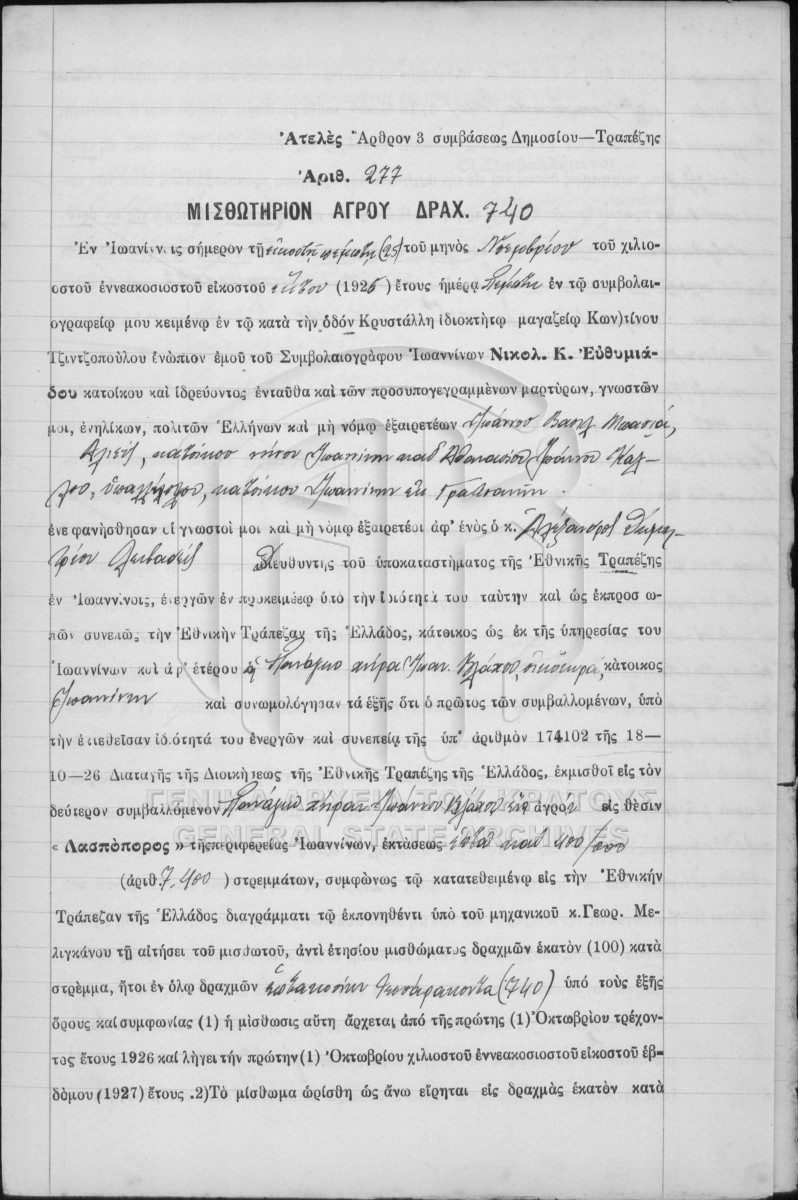 Ἀτελὲς Ἄρθρον 3 συμβάσεως Δημοσίου—Τραπέζης
Ἀριθ. 277
ΜΙΣΘΩΤΗΡΙΟΝ ΑΓΡΟΥ ΔΡΑΧ. 740
Ἐν Ἰωαννίνοις σήμερον τῇ εἰκοστῇ πέμπτῃ (25) τοῦ μηνὸς Νοεμβρίου τοῦ χιλιο-
οστοῦ ἐννεακοσιοστοῦ εἰκοστοῦ ἕκτου (1926) ἔτους ἡμέρᾳ Πέμπτῃ ἐν τῷ συμβολαι-
ογραφείῳ μου κειμένῳ ἐν τῷ κατὰ τὴν ὁδόν Κρυστάλλη ἰδιοκτήτῳ μαγαζείῳ Κων)τίνου
Τζιντζοπούλου ἐνώπιον ἐμοῦ τοῦ Συμβολαιογράφου Ἰωαννίνων Νικολ. Κ. Εὐθυμιά-
δου κατοίκου καὶ ἑδρεύοντος ἐνταῦθα καὶ τῶν προσυπογεγραμμένων μαρτύρων, γνωστῶν
μοι, ἐνηλίκων, πολιτῶν Ἑλλήνων καὶ μὴ νόμῳ ἐξαιρετέων Ἰωάννου Βασιλ.
κατοίκου νήσου Ἰωαννίνων καὶ Ἀθανασίου Ἰωάννου
κατοίκου Ἰωαννίνων
ἐνεφανίσθησαν οἱ γνωστοί μοι καὶ μὴ νόμῳ ἐξαιρετέοι ἀφ' ἑνὸς ὁ κ. Ἀλέξανδρος Δημη-
τρίου Λειβαδεὺς Διευθυντὴς τοῦ ὑποκαταστήματος τῆς Ἐθνικῆς Τραπέζης
ἐν Ἰωαννίνοις, ἐνεργῶν ἐν προκειμένῳ ὑπὸ τὴν ἰδιότητά του ταύτην καὶ ὡς ἐκπροσω-
πῶν συνεπῶς τὴν Ἐθνικὴν Τράπεζαν τῆς Ἑλλάδος, κάτοικος ὡς ἐκ τῆς ὑπηρεσίας του
Ἰωαννίνων καὶ ἀφ' ἑτέρου ἡ Πανάγιω χήρα Ἰωάν. Βλάχου, οἰκοκυρά, κάτοικος
Ἰωαννίνων καὶ συνωμολόγησαν τὰ ἑξῆς ὅτι ὁ πρῶτος τῶν συμβαλλομένων, ὑπὸ
τὴν ἐκτεθεῖσαν ἰδιότητά του ἐνεργῶν καὶ συνεπείᾳ τῆς ὑπ' ἀριθμὸν 174102 τῆς 18—
10—26 Διαταγῆς τῆς Διοικήσεως τῆς Ἐθνικῆς Τραπέζης τῆς Ἑλλάδος, ἐκμισθοῖ εἰς τὸν
δεύτερον συμβαλλόμενον Πανάγιω χήραν Ἰωάννου Βλάχου ἕνα ἀγρόν εἰς θέσιν
« Λασπόπορος » τῆς περιφερείας Ἰωαννίνων, ἐκτάσεως ἑπτὰ καὶ 400/000
(ἀριθ. 7.400 ) στρεμμάτων, συμφώνως τῷ κατατεθειμένῳ εἰς τὴν Ἐθνικήν
Τράπεζαν τῆς Ἑλλάδος διαγράμματι τῷ ἐκπονηθέντι ὑπὸ τοῦ μηχανικοῦ κ. Γεωρ. Με-
λιγκάνου τῇ αἰτήσει τοῦ μισθωτοῦ, ἀντὶ ἐτησίου μισθώματος δραχμῶν ἑκατὸν (100) κατὰ
στρέμμα, ἤτοι ἐν ὅλῳ δραχμῶν ἑπτακοσίων τεσσαράκοντα (740) ὑπὸ τοὺς ἑξῆς
ὅρους καὶ συμφωνίας (1) ἡ μίσθωσις αὕτη ἄρχεται ἀπὸ τῆς πρώτης (1) Ὀκτωβρίου τρέχον-
τος ἔτους 1926 καὶ λήγει τὴν πρώτην (1) Ὀκτωβρίου χιλιοστοῦ ἐννεακοσιοστοῦ εἰκοστοῦ ἑβ-
δόμου (1927) ἔτους .2) Τὸ μίσθωμα ὡρίσθη ὡς ἄνω εἴρηται εἰς δραχμὰς ἑκατὸν κατὰ
ΓΕΝΙΚΑ ΑΡΧΕΙΑ ΤΟΥ ΚΡΑΤΟΥΣ
GENERAL STATE ARCHIVES